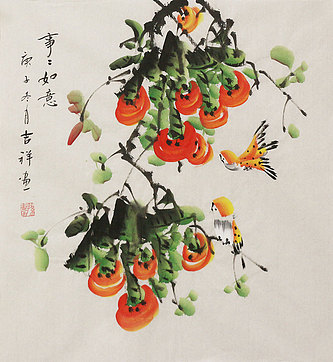 事〻如意
庚子冬月吉祥画